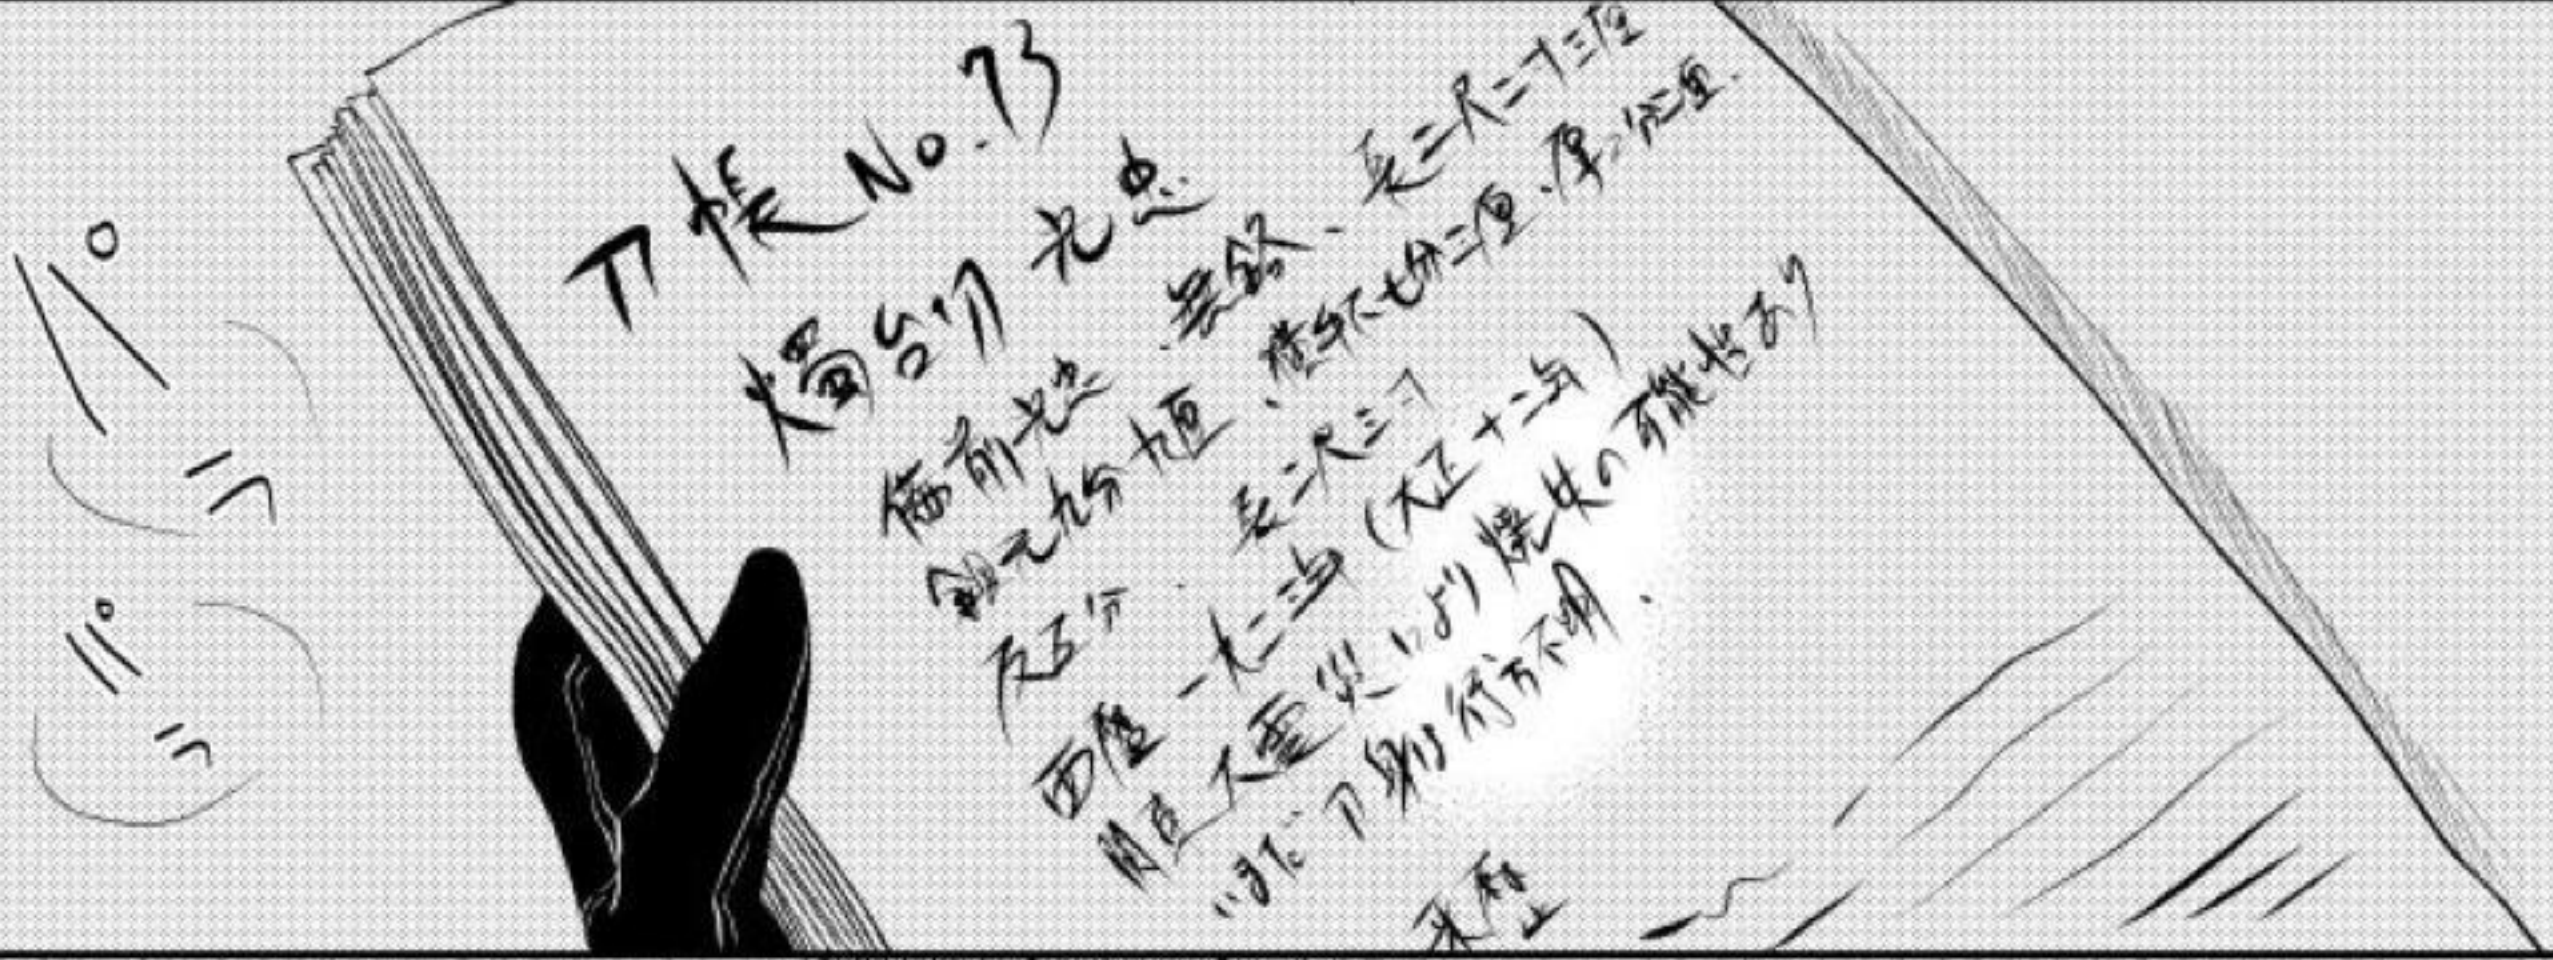 刀帳No.73
燭台切 光忠
備前光忠、無銘、長二尺二寸三厘
鎺元九分九厘、横手下七分三厘、厚二分二厘、
反五分 長二尺三寸
西暦一九二三年(大正十二年)
関東大震災により焼失の可能性あり
いまだ刀身は行方不明、
来歴
ペラ
パラ